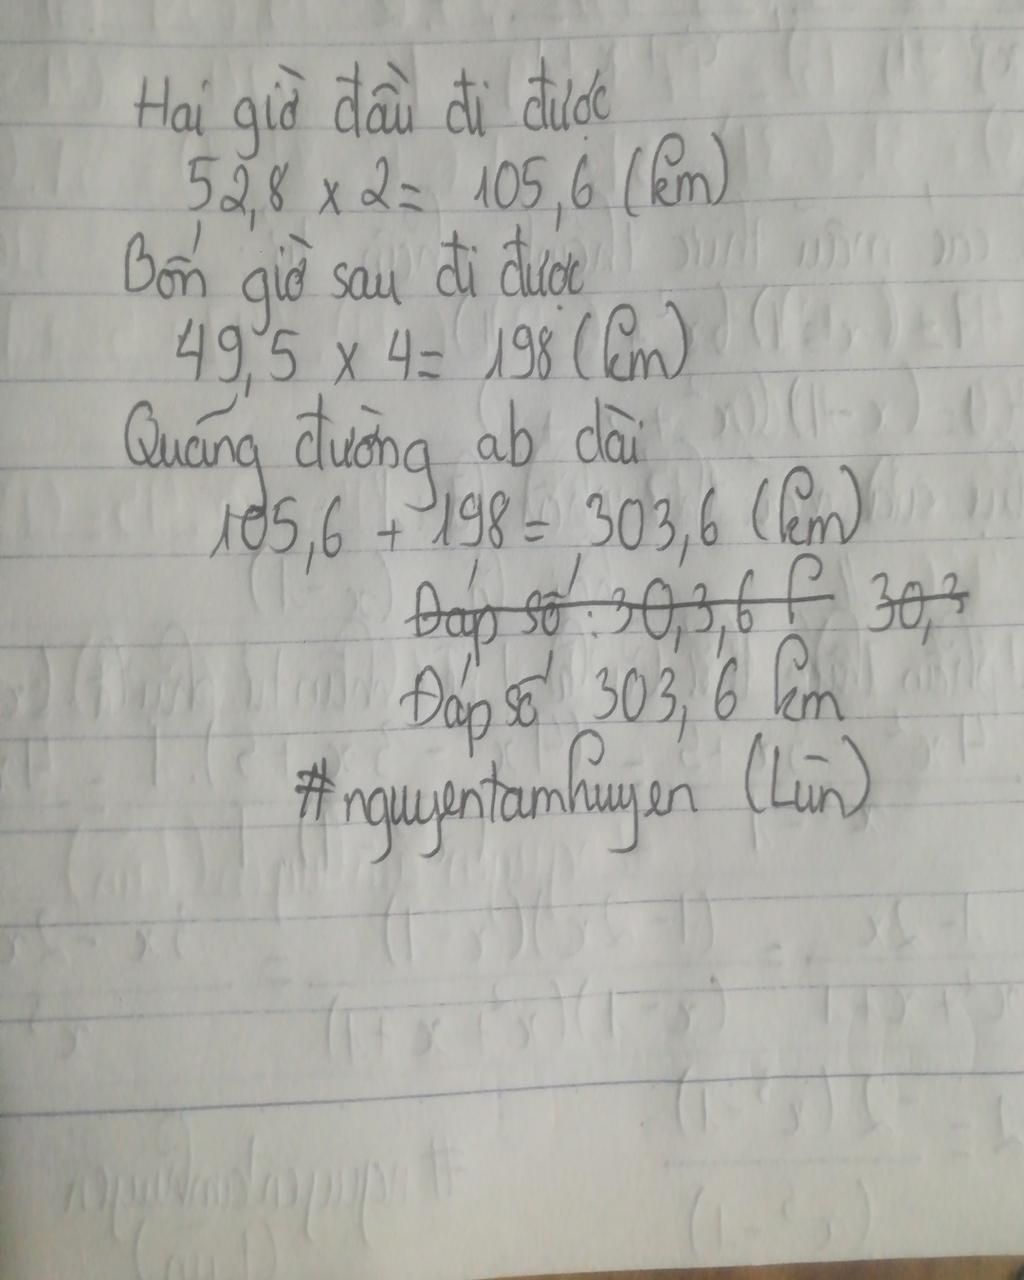 Hai giờ đầu đi được
52,8 x 2 = 105,6 (km)
Bốn giờ sau đi được
49,5 x 4 = 198 (km)
Quãng đường ab dài
105,6 + 198 = 303,6 (km)
Đáp số : 30,3,6 k 30,3
Đáp số 303,6 km
#nguyentamhuyen (Lùn)